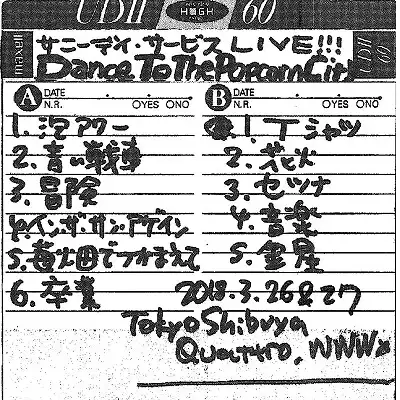 UDII HIGH 60
maxell
UDII 60
サニーデイ・サービス LIVE!!!
Dance To The Popcorn City
A DATE
N.R. OYES ONO
B DATE
N.R. OYES ONO
1. 泡アワー
2. 青い戦車
3. 冒険
4. イン・ザ・サン・アゲイン
5. 苺畑でつかまえて
6. 卒業
1. Tシャツ
2. 花火
3. セツナ
4. 音楽
5. 金星
2018.3.26&27
Tokyo Shibuya
Quattro, WWWx